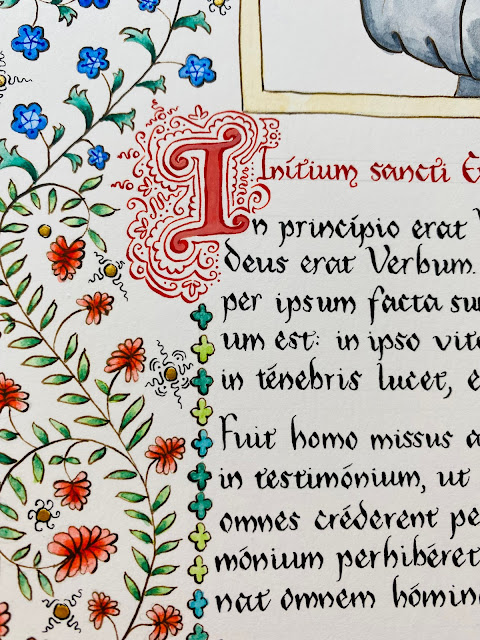 Inítium sancti E
In princípio erat V
deus erat Verbum.
per ipsum facta su
um est: in ipso vit
in ténebris lucet, e
Fuit homo missus a
in testimónium, ut
omnes créderent pe
mónium perhibéret
nat omnem hómin